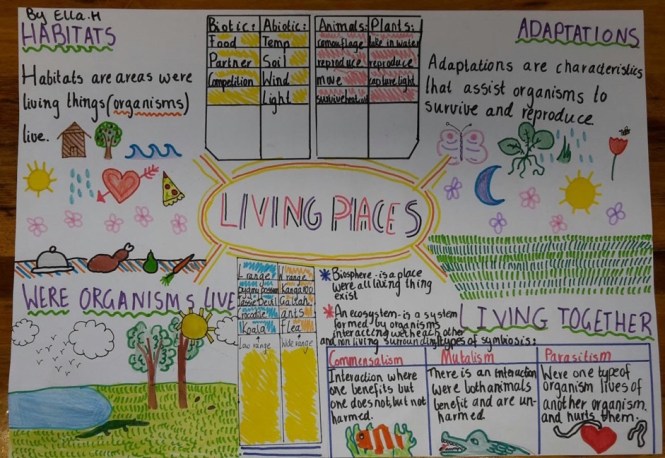 By Ella.H
HABITATS
Habitats are areas were
living things (organisms)
live.
Biotic: Abiotic:
Food Temp
Partner Soil
Competition Wind
Light
Animals: Plants:
camouflage take in water
reproduce reproduce
move capture light
ADAPTATIONS
Adaptations are characteristics
that assist organisms to
survive and reproduce.
LIVING PlACES
WERE ORGANISMS LIVE
L range H range
possum Kangaroo
Galah
Crocodile ants
Koala Flea
Low range wide range
*Biosphere-is a place
were all living thing
exist
*An ecosystem-is a system
formed by organisms
interacting with each other
and non living surroundings
LIVING TOGETHER
types of symbiosis:
Commensalism
Interaction where
one benefits but
one does not, but not
harmed.
Mutalism
There is an interaction
were both animals
benefit and are un-
harmed.
Parasitism
Were one type of
organism lives of
another organism
and hurts them.